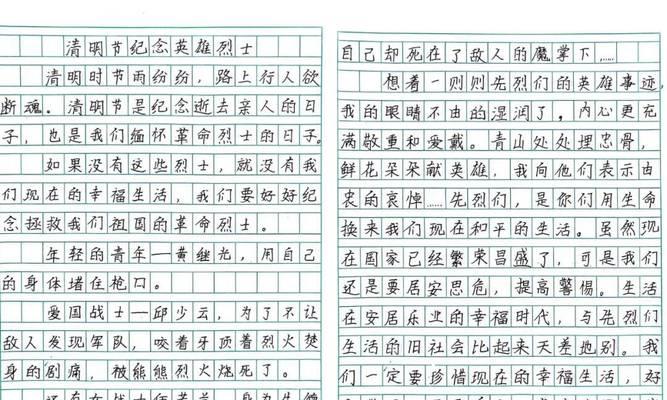 清明节纪念英雄烈士
清明时节雨纷纷，路上行人欲
断魂。清明节是纪念逝去亲人的日
子，也是我们缅怀革命烈士的日子。
如果没有这些烈士，就没有我
们现在的幸福生活，我们要好好纪
念拯救我们祖国的革命烈士。
年轻的青年—黄继光，用自己
的身体堵住枪口。
爱国战士—邱少云，为了不让
敌人发现军队，咬着牙顶着烈火焚
身的剧痛，被熊熊烈火烧死了。
自己却死在了敌人的魔掌下……
想着一则则先烈们的英雄事迹，
我的眼睛不由的湿润了。内心更充
满敬重和爱戴。青山处处埋忠骨，
鲜花朵朵献英雄，我向他们表示由
衷的哀悼……先烈们，是你们用生命
换来我们现在和平的生活。虽然现
在国家已经繁荣昌盛了，可是我们
还是要居安思危，提高警惕。生活
在安居乐业的幸福时代，与先烈们
生活的旧社会比起来天差地别。我
们一定要珍惜现在的幸福生活，好